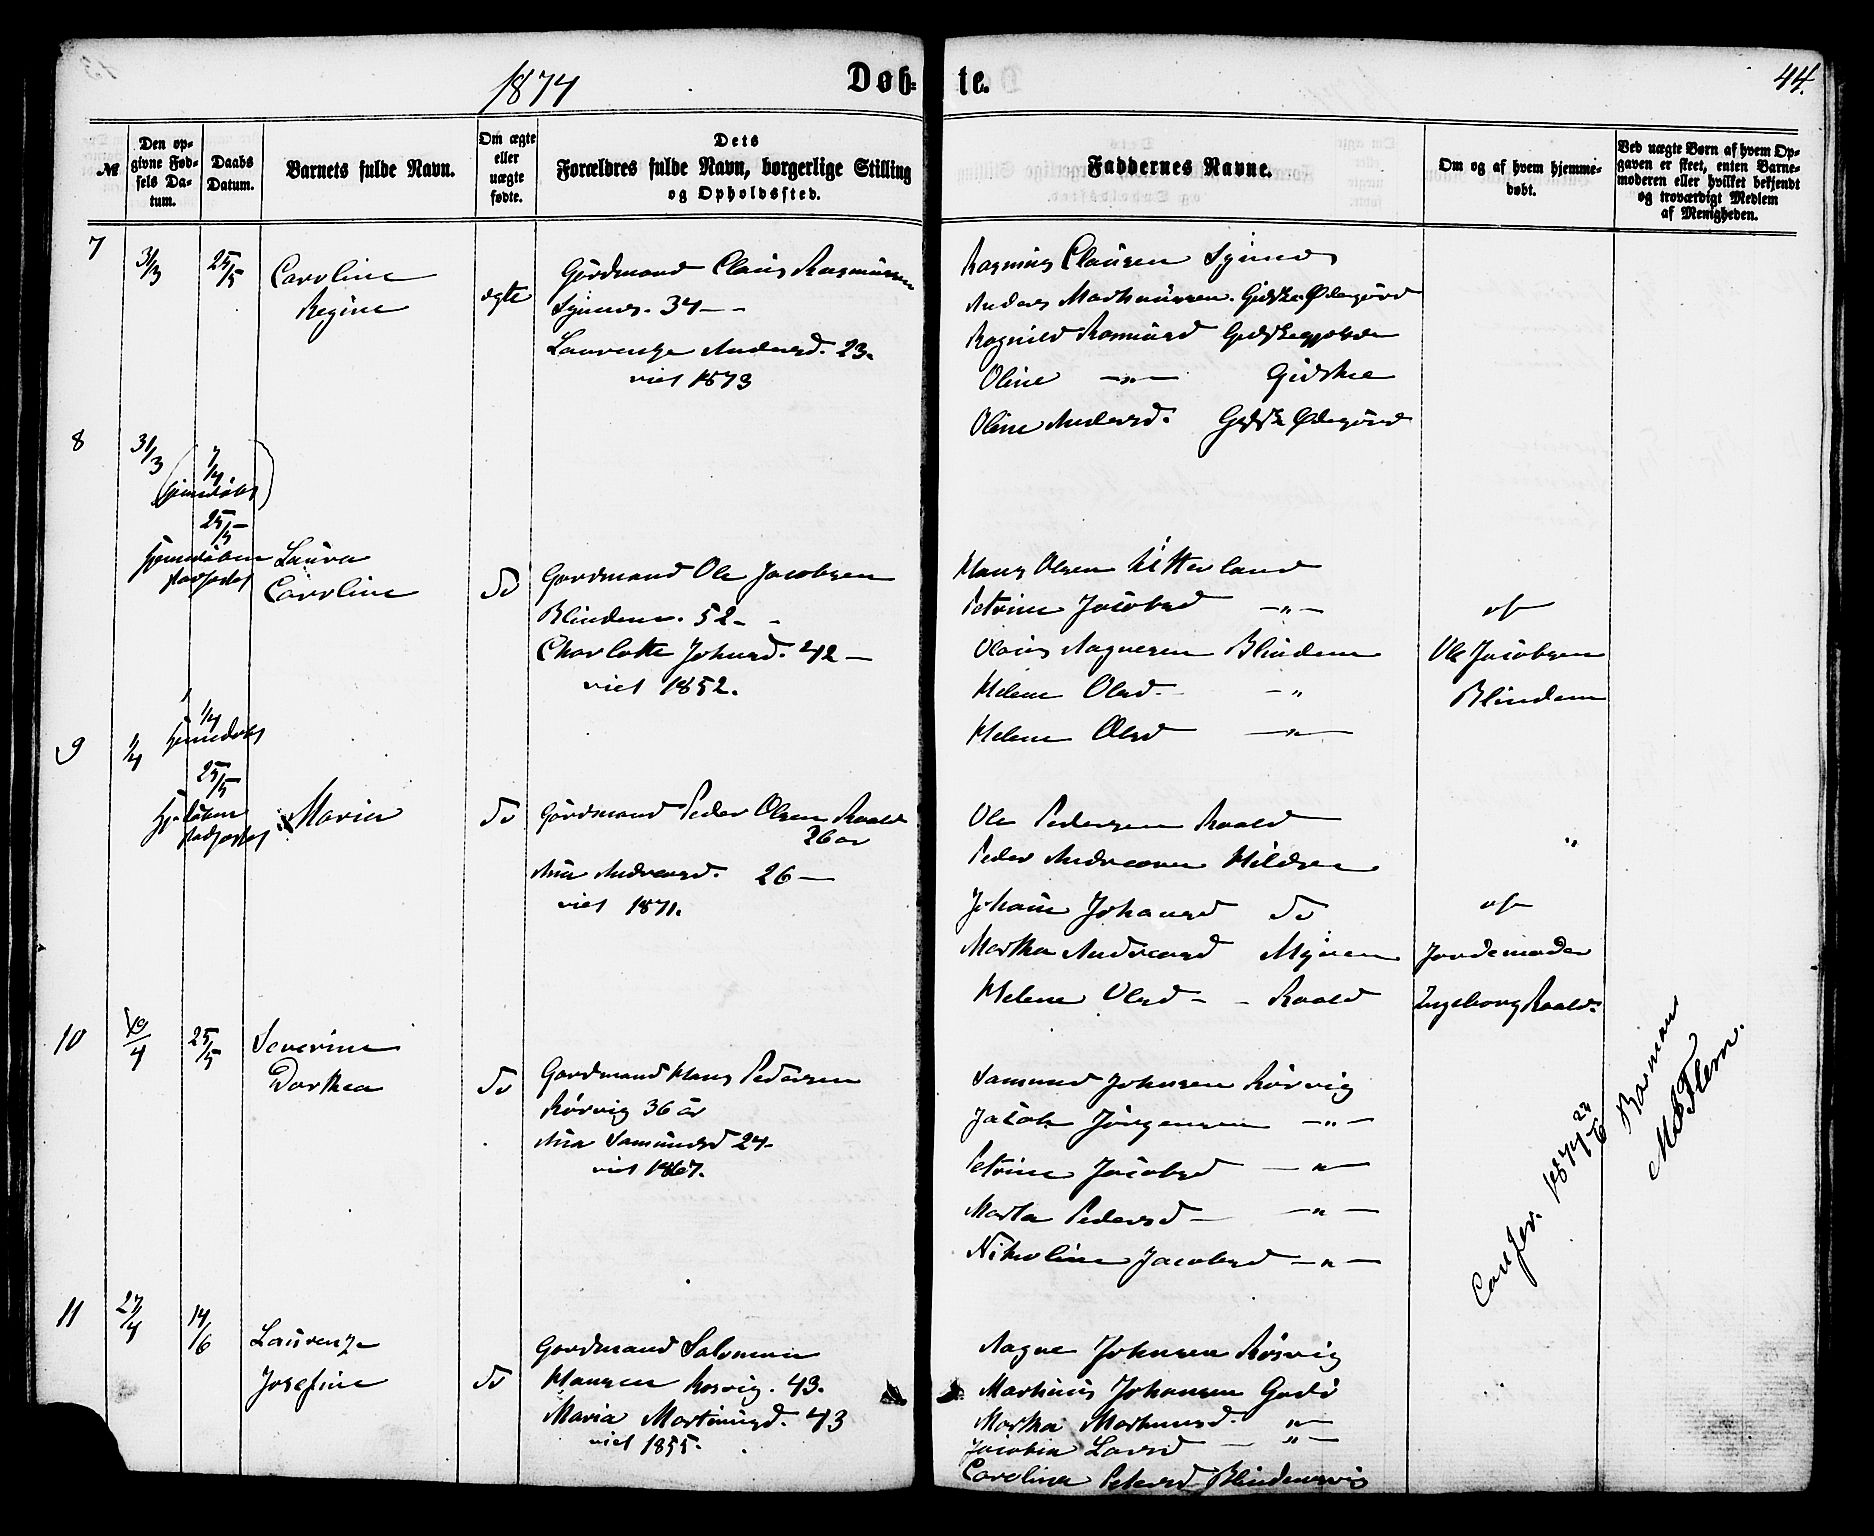 1874
Døb-
te.
44.
№
Den op-
givne Fød-
sels Da-
tum.
Daabs
Datum.
Barnets fulde Navn.
Om ægte
eller
uægte
fødte.
Dets
Forældres fulde Navn, borgerlige Stilling
og Opholdssted.
Faddernes Navne.
Om og af hvem hjemme-
døbt.
Ved uægte Børn af hvem Op-
gaven er skeet, enten Barne-
moderen eller hvilket bekjendt
og troværdigt Medlem
af Menigheden.
7
31/3
25/5
Caroline
Regine
egte
Gårdmand Claus Rasmusen
34 - -
Laurenze Andersd. 23.
viet 1873
Rasmus Clausen
Anders Mathiussen Gidske Ødegård
Ragnild Rasmusd
Oline -„- Gidske
Oline Andersd. Gidsk Ødegård
8
31/3
7/4
Hjemdøbt
25/5
Hjemdåben
stadfæstet
Laura
Caroline
do
Gardmand Ole Jacobsen
Blindem. 52 - -
Charlotte Johnsd. 42 -
viet 1852.
Hans Olsen Ytterland
Petrine Jacobsd -„-
Olaus Aagesen Blindem
Helene Olsd - -„
Helene Olsd -„-
af
Ole Jacobsen
Blindem
9
1/4
1/4
Hjemdøbt
25/5
Hj. dåben
stadfæstet
Maria
do
Gårdmand Peder Olsen Roald
26 år
Ana Andreasd. 26 -
viet 1871.
Ole Pedersen Roald
Peder Andreasen
Johan Johansd do
Martha Andreasd Myren
Helene Olsd - - Roald
„
af
Jordemoder
Ingeborg Roald
10
10/4
25/5
Severine
Dorthea
do
Gardmand Hans Pedersen
Rørvig 36 år
Ana Samundsd 24 -
viet 1867.
Samund Johnsen Rørvig
Jacob Jørgensen -„-
Petrine Jacobsd -„-
Marta Pedersd - -„-
Nikoline Jacobsd -„-
Confer. 1874 24/6
M Flem.
11
27/4
14/6
Laurenze
Josefine
do
Gardmand Salomon
Hansen Rørvig. 43.
Maria Martinusd. 43
viet 1855.
Aagne Johnsen Rørvig
Martinus Johansen Godø
Martha Martinusd. „-
Jacobia Larsd - „-
Carolina Petersd Blindemsvig